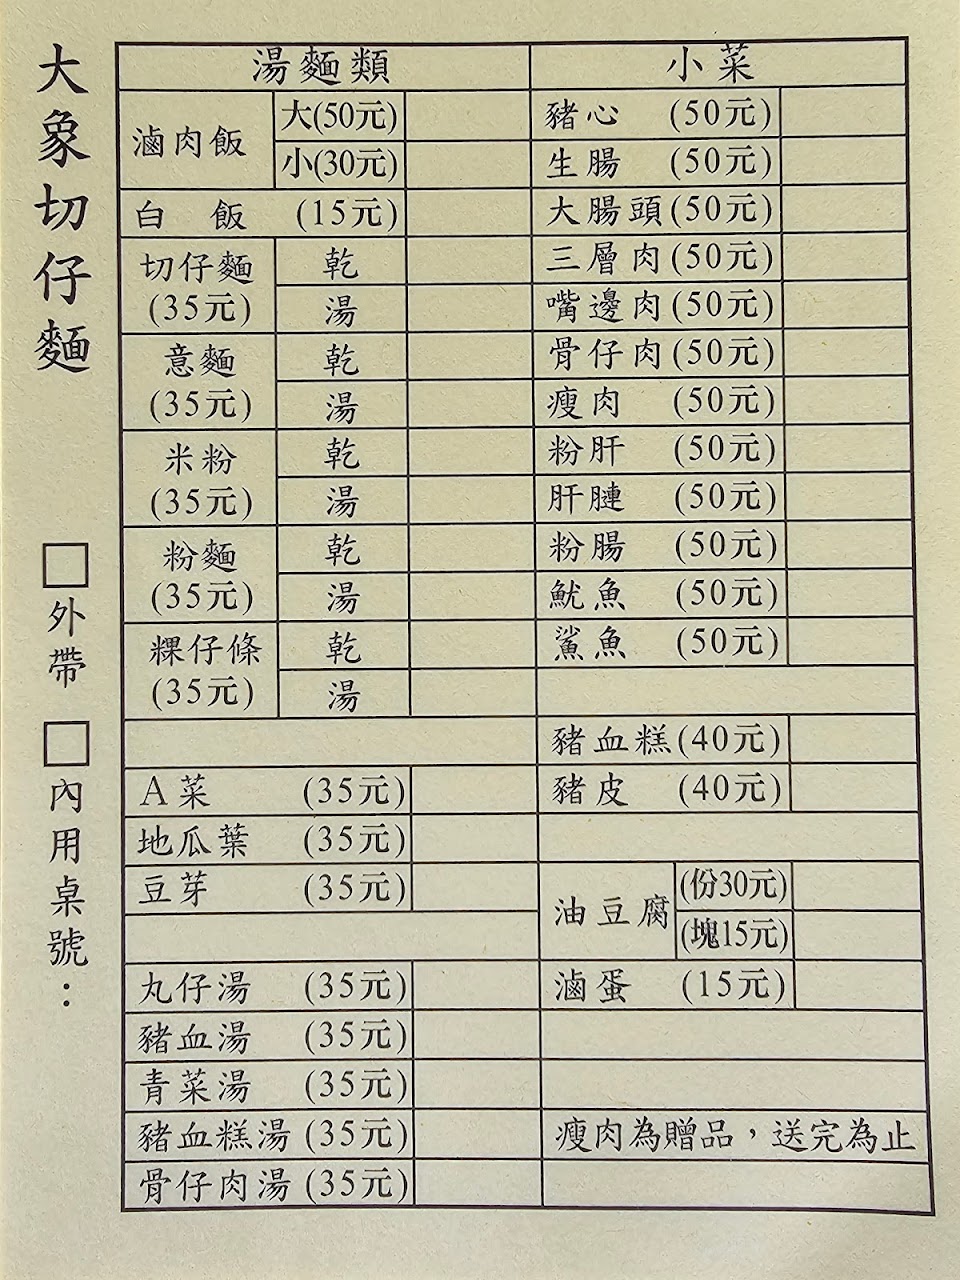 大象切仔麵
□外帶 □內用桌號：
湯麵類
滷肉飯 大(50元)
小(30元)
白 飯 (15元)
切仔麵 (35元) 乾
湯
意麵 (35元) 乾
湯
米粉 (35元) 乾
湯
粉麵 (35元) 乾
湯
粿仔條 (35元) 乾
湯
A菜 (35元)
地瓜葉 (35元)
豆芽 (35元)
丸仔湯 (35元)
豬血湯 (35元)
青菜湯 (35元)
豬血糕湯 (35元)
骨仔肉湯 (35元)
小菜
豬心 (50元)
生腸 (50元)
大腸頭 (50元)
三層肉 (50元)
嘴邊肉 (50元)
骨仔肉 (50元)
瘦肉 (50元)
粉肝 (50元)
肝腱 (50元)
粉腸 (50元)
魷魚 (50元)
鯊魚 (50元)
豬血糕 (40元)
豬皮 (40元)
油豆腐 (份30元)
(塊15元)
滷蛋 (15元)
瘦肉為贈品，送完為止